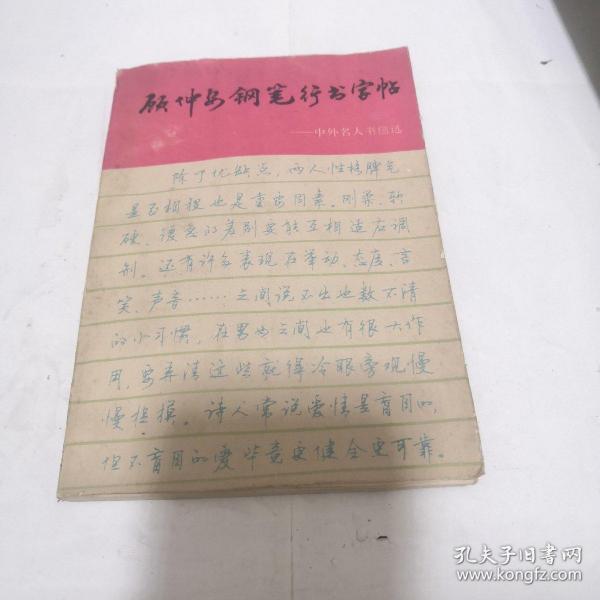 顾仲安钢笔行书字帖
——中外名人书简选
除了优缺点，两人性格脾气
是否相投也是重要因素。刚柔、软
硬、缓急的差别要能互相适应调
剂。还有许多表现在举动、态度、言
笑、声音……之间说不出也数不清
的小习惯，在男女之间也有很大作
用，要弄清这些就得冷眼旁观慢
慢揣摸。诗人常说爱情是盲目的，
但不盲目的爱毕竟更健全更可靠。
孔夫子旧书网
www.kongfz.com